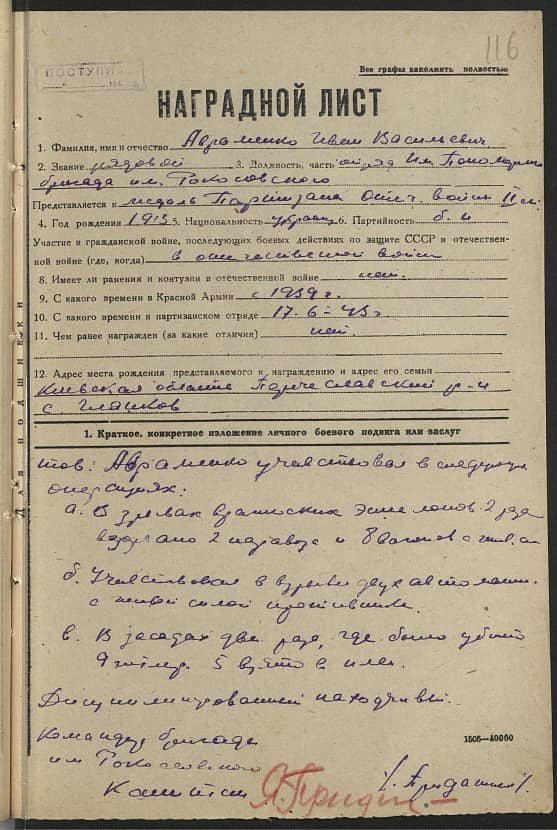 116
ПОСТУПИ
Все графы заполнять полностью
НАГРАДНОЙ ЛИСТ
1. Фамилия, имя и отчество Авраменко Иван Васильевич
2. Звание рядовой 3. Должность, часть отряд им.
бригада им. Рокоссовского
Представляется к медаль Партизана Отеч. войны II ст.
4. Год рождения 1913 5. Национальность украин 6. Партийность б.п
Участие в гражданской войне, последующих боевых действиях по защите СССР и отечествен-
ной войне (где, когда) в отечественной войн
8. Имеет ли ранения и контузии в отечественной войне нет.
9. С какого времени в Красной Армии с 1939 г.
10. С какого времени в партизанском отряде 17.6-43 г
11. Чем ранее награжден (за какие отличия) нет.
12. Адрес места рождения представляемого к награждению и адрес его семьи
Киевская область р-н
с.
Для подшивки
1. Краткое, конкретное изложение личного боевого подвига или заслуг
тов: Авраменко участвовал в следующих
операциях:
а. В взрывах вражеских эшелонов 2 раза
взорвано 2 паровоза и 8 вагонов с
б. Участвовал в взрыве двух автомашин
с живой силой противника.
в. В засадах два раза, где было убито
9 гитлер. 5 взято в плен.
Дисциплинированный находчивый.
Командир бригады
им Рокоссовского
Капитан
1505—40000